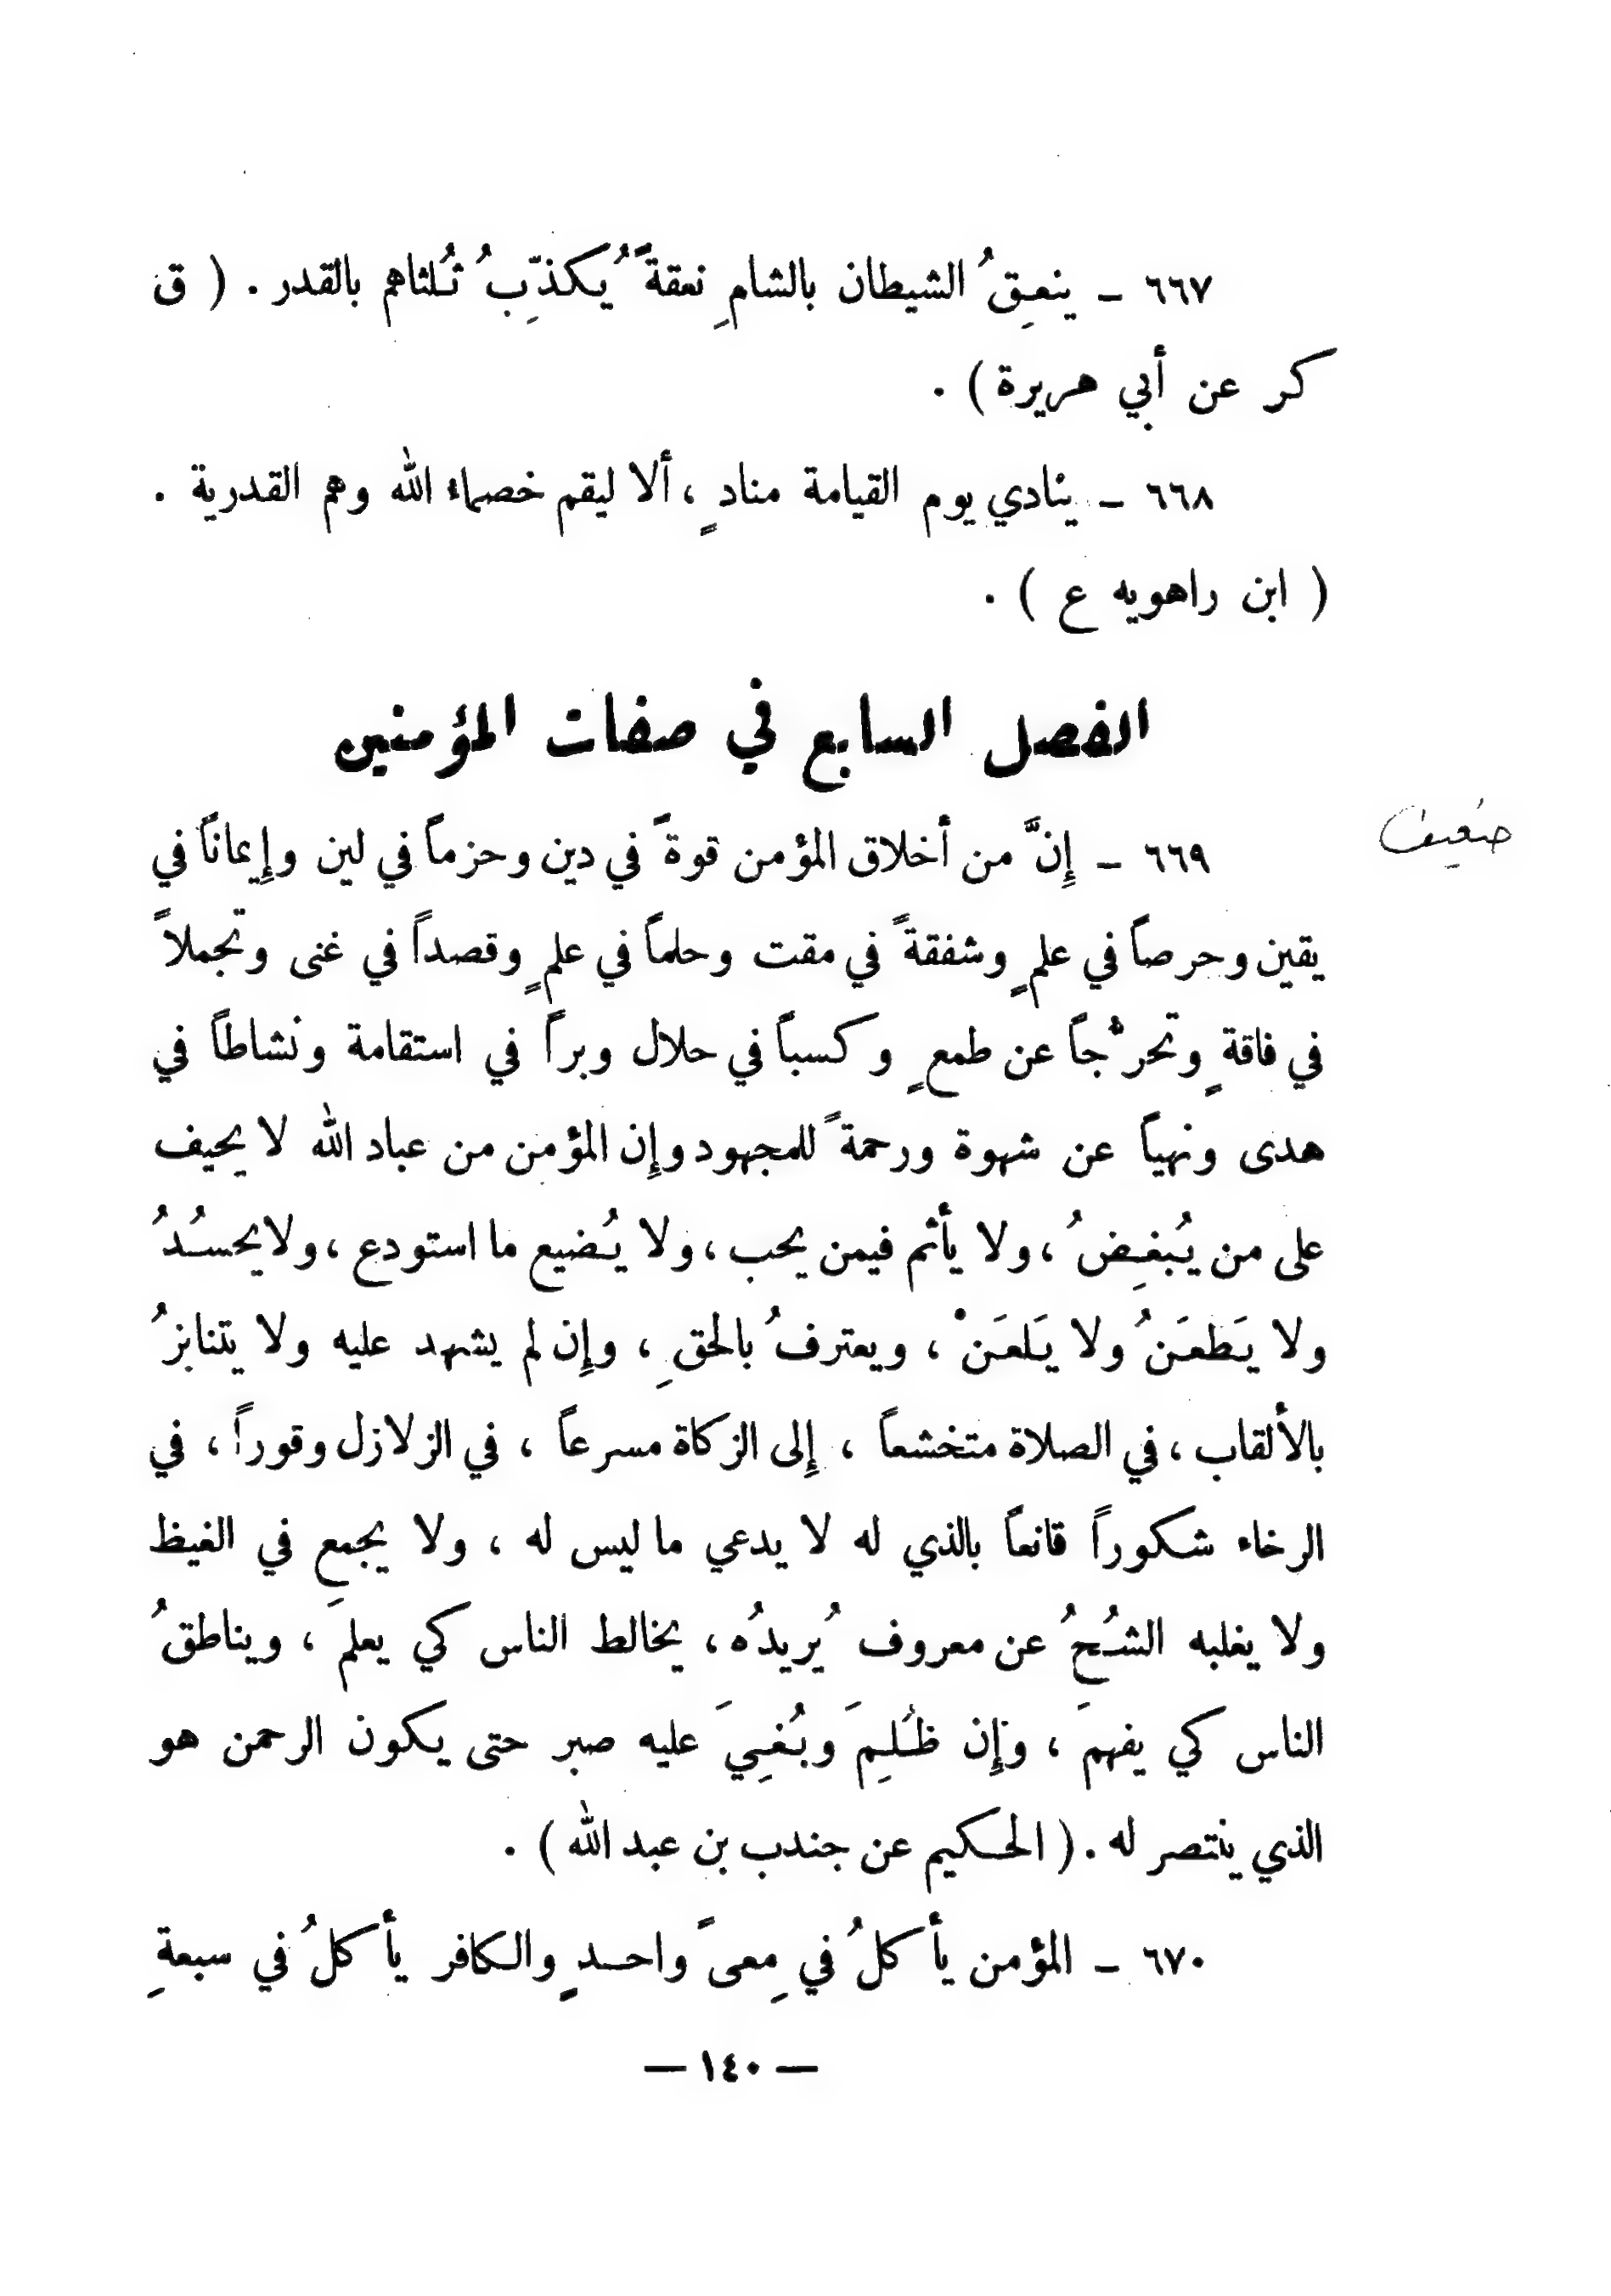 ٦٦٧ ـ ينعِقُ الشيطان بالشامِ نعقةً يُكذِّبُ ثُلثاهم بالقدر . ( ق
كر عن أبي هريرة ) .
٦٦٨ ـ ينادي يوم القيامة منادٍ ، ألا ليقم خصماء الله وهم القدرية .
( ابن راهويه ع ) .
الفصل السابع في صفات المؤمنين
ضعيف
٦٦٩ ـ إِنَّ من أخلاق المؤمن قوةً في دين وحزماً في لين وإِيماناً في
يقين وحرصاً في علمٍ وشفقةً في مقت وحلماً في علمٍ وقصداً في غنى وتجملاً
في فاقةٍ وتحرُّجاً عن طمعٍ وكسباً في حلال وبراً في استقامة ونشاطاً في
هدى ونهياً عن شهوة ورحمةً للمجهود وإِن المؤمن من عباد الله لا يحيف
على من يُبغِضُ ، ولا يأثم فيمن يحب ، ولا يُضيع ما استودع ، ولايحسُدُ
ولا يَطعَنُ ولا يَلعَنْ ، ويعترفُ بالحقِ ، وإِن لم يشهد عليه ولا يتنابزُ
بالألقاب ، في الصلاة متخشعاً ، إِلى الزكاة مسرعاً ، في الزلازل وقوراً ، في
الرخاء شكوراً قانعاً بالذي له لا يدعي ما ليس له ، ولا يجمع في الغيظِ
ولا يغلبه الشُحُ عن معروف يُريدُه ، يخالط الناس كي يعلمَ ، ويناطقُ
الناس كي يفهمَ ، وإِن ظُلِمَ وبُغِيَ عليه صبر حتى يكون الرحمن هو
الذي ينتصر له . ( الحكيم عن جندب بن عبد الله ) .
٦٧٠ ـ المؤمن يأكلُ في مِعىً واحدٍ والكافر يأكلُ في سبعةِ
— ١٤٠ —